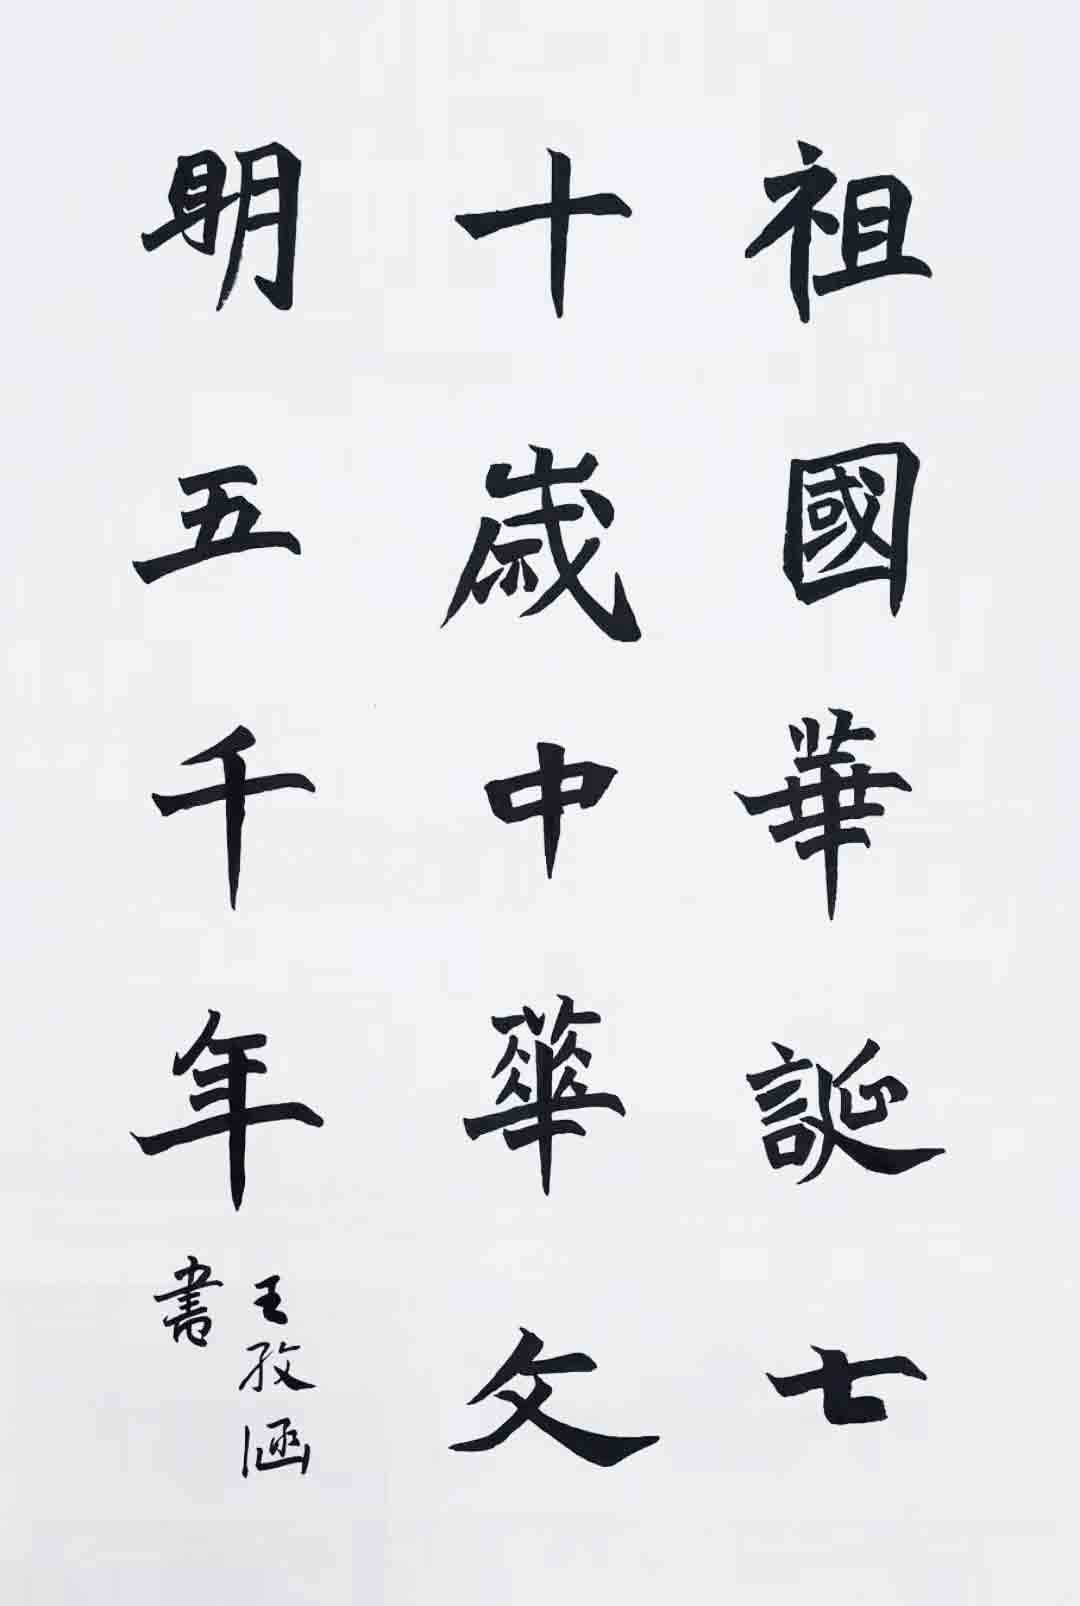 祖國華誕七
十歲中華文
明五千年
王孜涵
書